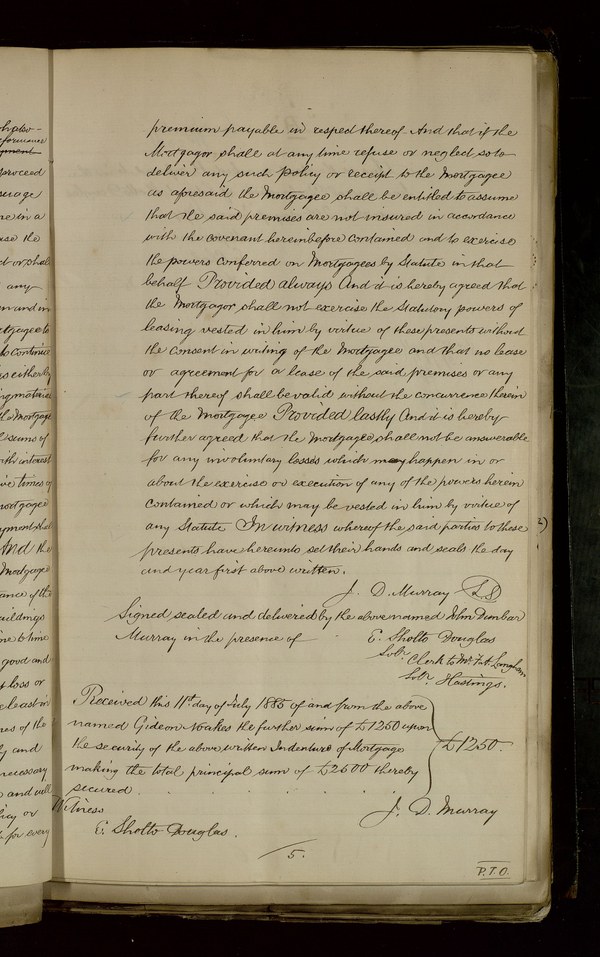 premium payable in respect thereof And that if the
Mortgagor shall at any time refuse or neglect so to
deliver any such policy or receipt to the Mortgagee
as aforesaid the Mortgagee shall be entitled to assume
that the said premises are not insured in accordance
with the covenant hereinbefore contained and to exercise
the powers conferred on Mortgagees by Statute in that
behalf Provided always And it is hereby agreed that
the Mortgagor shall not exercise the Statutory powers of
leasing vested in him by virtue of these presents without
the consent in writing of the Mortgagee and that no lease
or agreement for a lease of the said premises or any
part thereof shall be valid without the concurrence therein
of the Mortgagee Provided lastly And it is hereby
further agreed that the Mortgagee shall not be answerable
for any involuntary losses which may happen in or
about the exercise or execution of any of the powers herein
contained or which may be vested in him by virtue of
any Statute In witness whereof the said parties to these
presents have hereunto set their hands and seals the day
and year first above written.
J. D. Murray LS
Signed sealed and delivered by the above named John Dunbar
Murray in the presence of
E. Sholto Douglas
Solr.
Clerk to Mr. F. A. Langham
Solr. Hastings.
Received this 11th. day of July 1885 of and from the above
named Gideon Makes the further sum of £1250 upon
the security of the above written Indenture of Mortgage
making the total principal sum of £2500 thereby
secured . . . . . .
£1250.
Witness
J. D. Murray
E. Sholto Douglas.
5.
P.T.O.